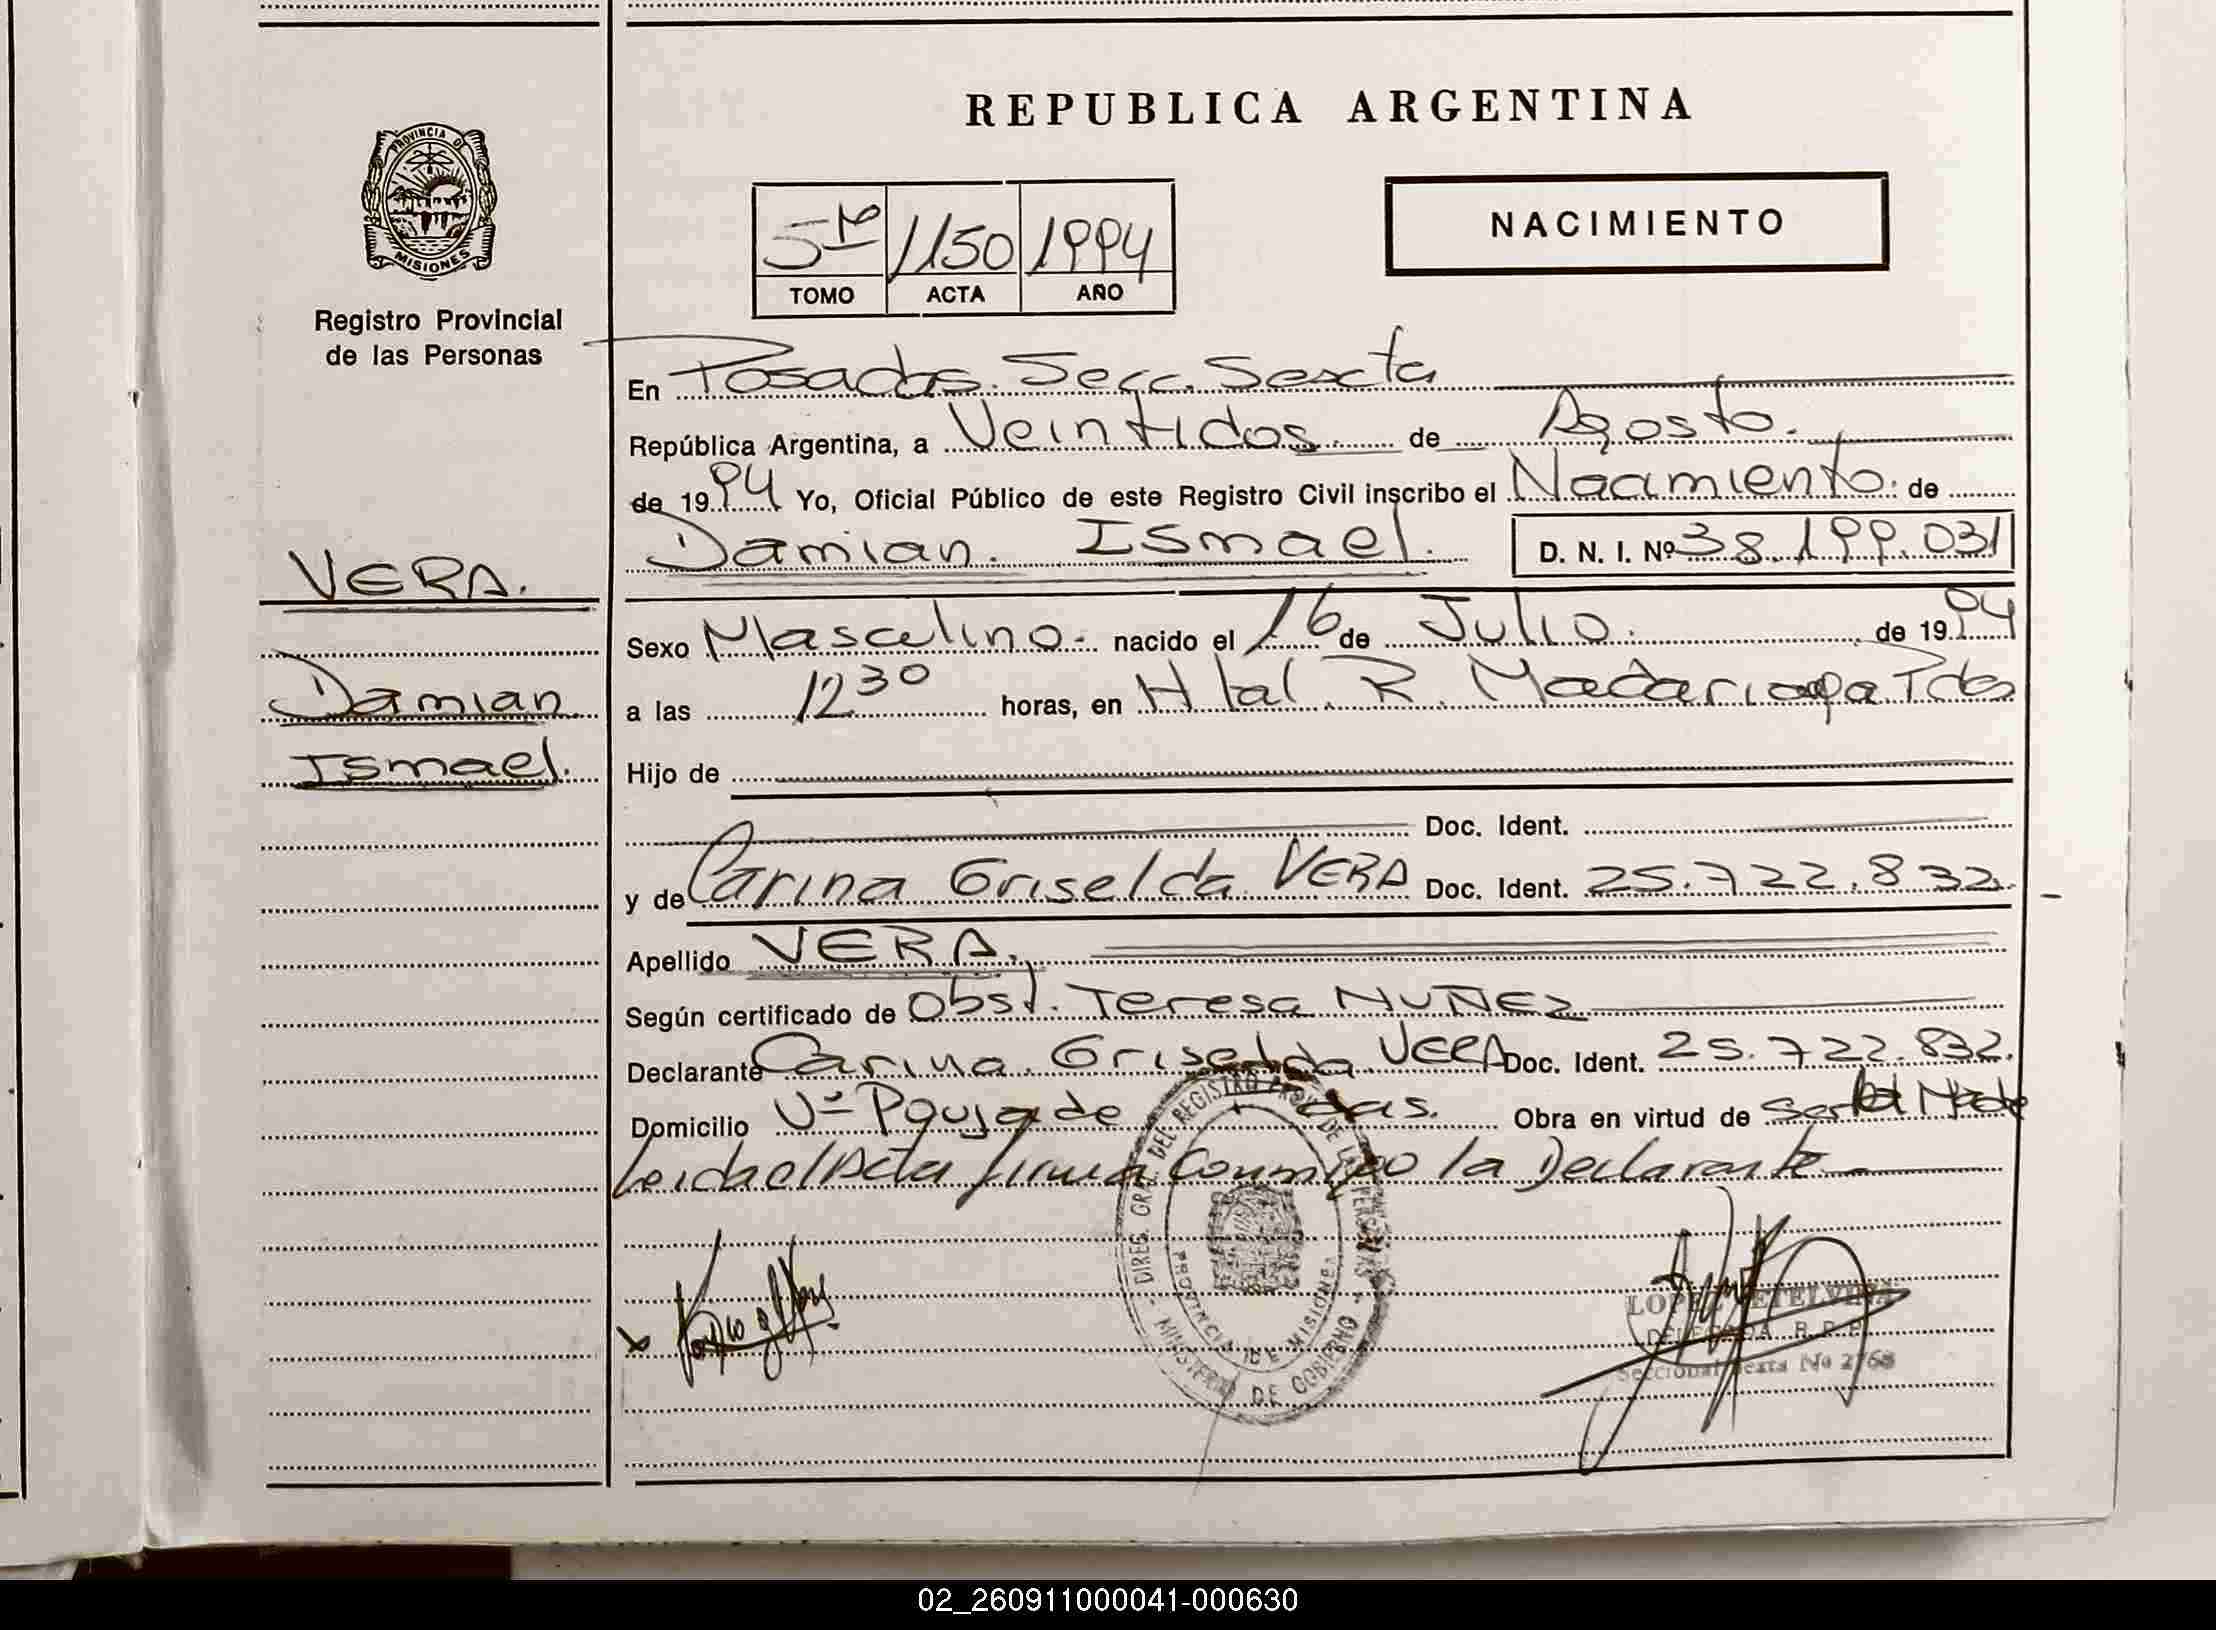 REPUBLICA ARGENTINA
PROVINCIA DE
MISIONES
Registro Provincial
de las Personas
5to 1150 1994
TOMO ACTA AÑO
NACIMIENTO
En Posadas. Secc. Sexta
República Argentina, a Veintidos. de Agosto.
de 1994 Yo, Oficial Público de este Registro Civil inscribo el Nacimiento. de
Damian. Ismael. D. N. I. Nº 38.199.031
VERA.
Damian
Ismael.
Sexo Masculino.- nacido el 16 de Julio. de 1994
a las 12 30 horas, en Htal. R. Madariaga Pdas
Hijo de
Doc. Ident.
y de Carina Griselda VERA Doc. Ident. 25.722.832.
Apellido VERA.
Según certificado de Obst. Teresa NUÑEZ
Declarante Carina. Griselda VERA Doc. Ident. 25.722.832.
Domicilio Vº Poujade das. Obra en virtud de Ser la Madre
Leida el Acta firma Conmigo la Declarante
DIREC. GRAL. DEL REGISTRO PROV. DE LAS PERSONAS
PROVINCIA DE MISIONES
MINISTERIO DE GOBIERNO
LOPEZ ETELVINA
DELEGADA R.P.P.
Seccional Sexta No 2768
02_260911000041-000630